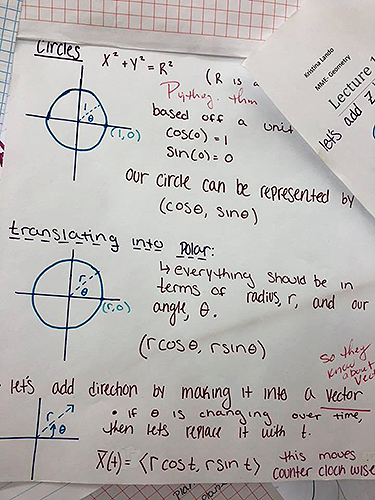 Circles
X² + Y² = R²
(R is a
Pythag. thm
based off a unit
cos(0) = 1
sin(0) = 0
1
θ
(1,0)
our circle can be represented by
(cosθ, sinθ)
translating into Polar:
↳ everything should be in
terms of radius, r, and our
angle, θ.
r
θ
(r,0)
(rcosθ, rsinθ)
so they
know about
vect
let's add direction by making it into a vector
• if θ is changing over time,
then lets replace it with t.
r
θ
X(t) = ⟨r cos t, r sin t⟩
this moves
counter clock wise
Kristina Lando
Geometry
Lecture 1
let's add Z